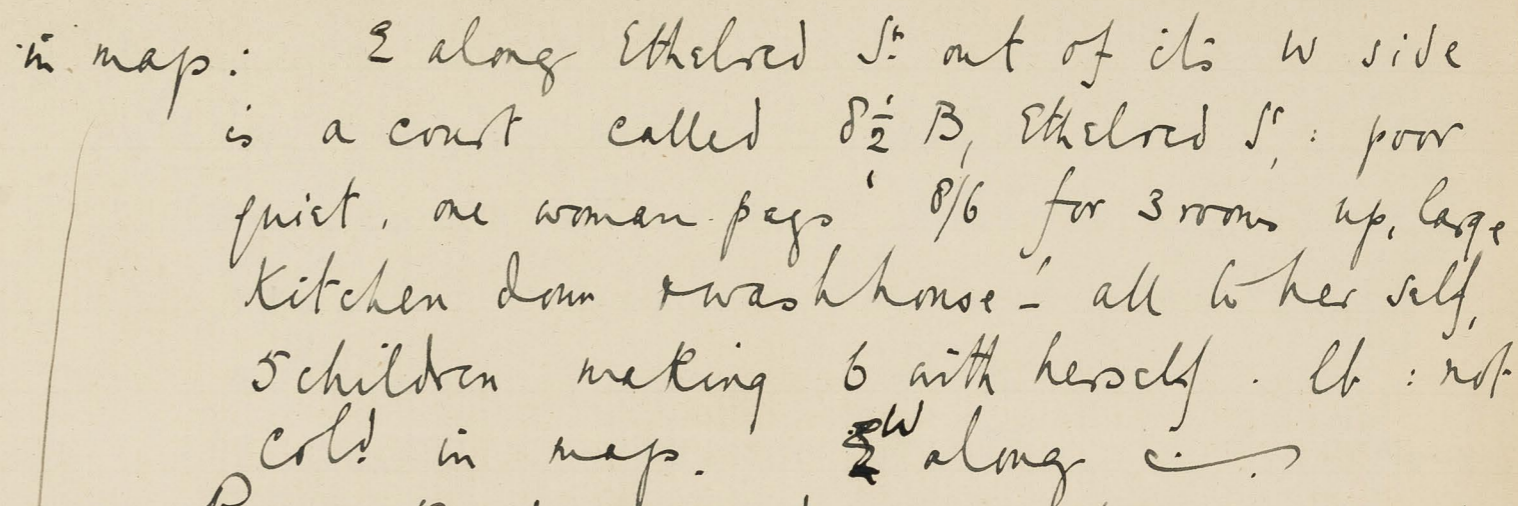 in map: E along Ethelred St. out of its W side
is a court called 8½ B, Ethelred St, : poor
quiet, one woman pays 8/6 for 3 rooms up, large
kitchen down + washhouse - all to her self,
5 children making 6 with herself. lb : not
cold in map. W along